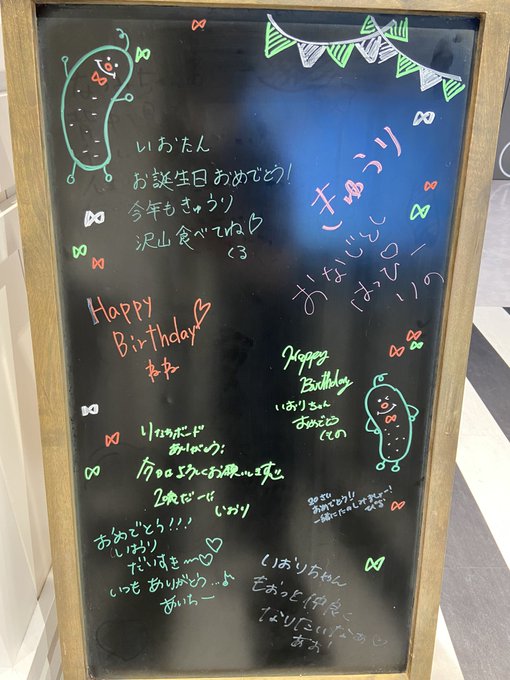 いおたん
お誕生日おめでとう!
今年もきゅうり
沢山食べてね♡
くる
きゅうり
おなごどし
はっぴー
りの
Happy
Birthday♡
ねね
Happy
Birthday
いおりちゃん
おめでとう
しての
ボード
ありがとう!
今日はよろしくお願いします
20歳だーい
いおり
20さい
おめでとう!!
一緒にたのしみましょー!
おめでとう!!!
いおうり
だいすき〜♡♡
いつもありがとう...よ
あいちー
いおりちゃん
もおっと仲良く
なりたいなあ
あお!